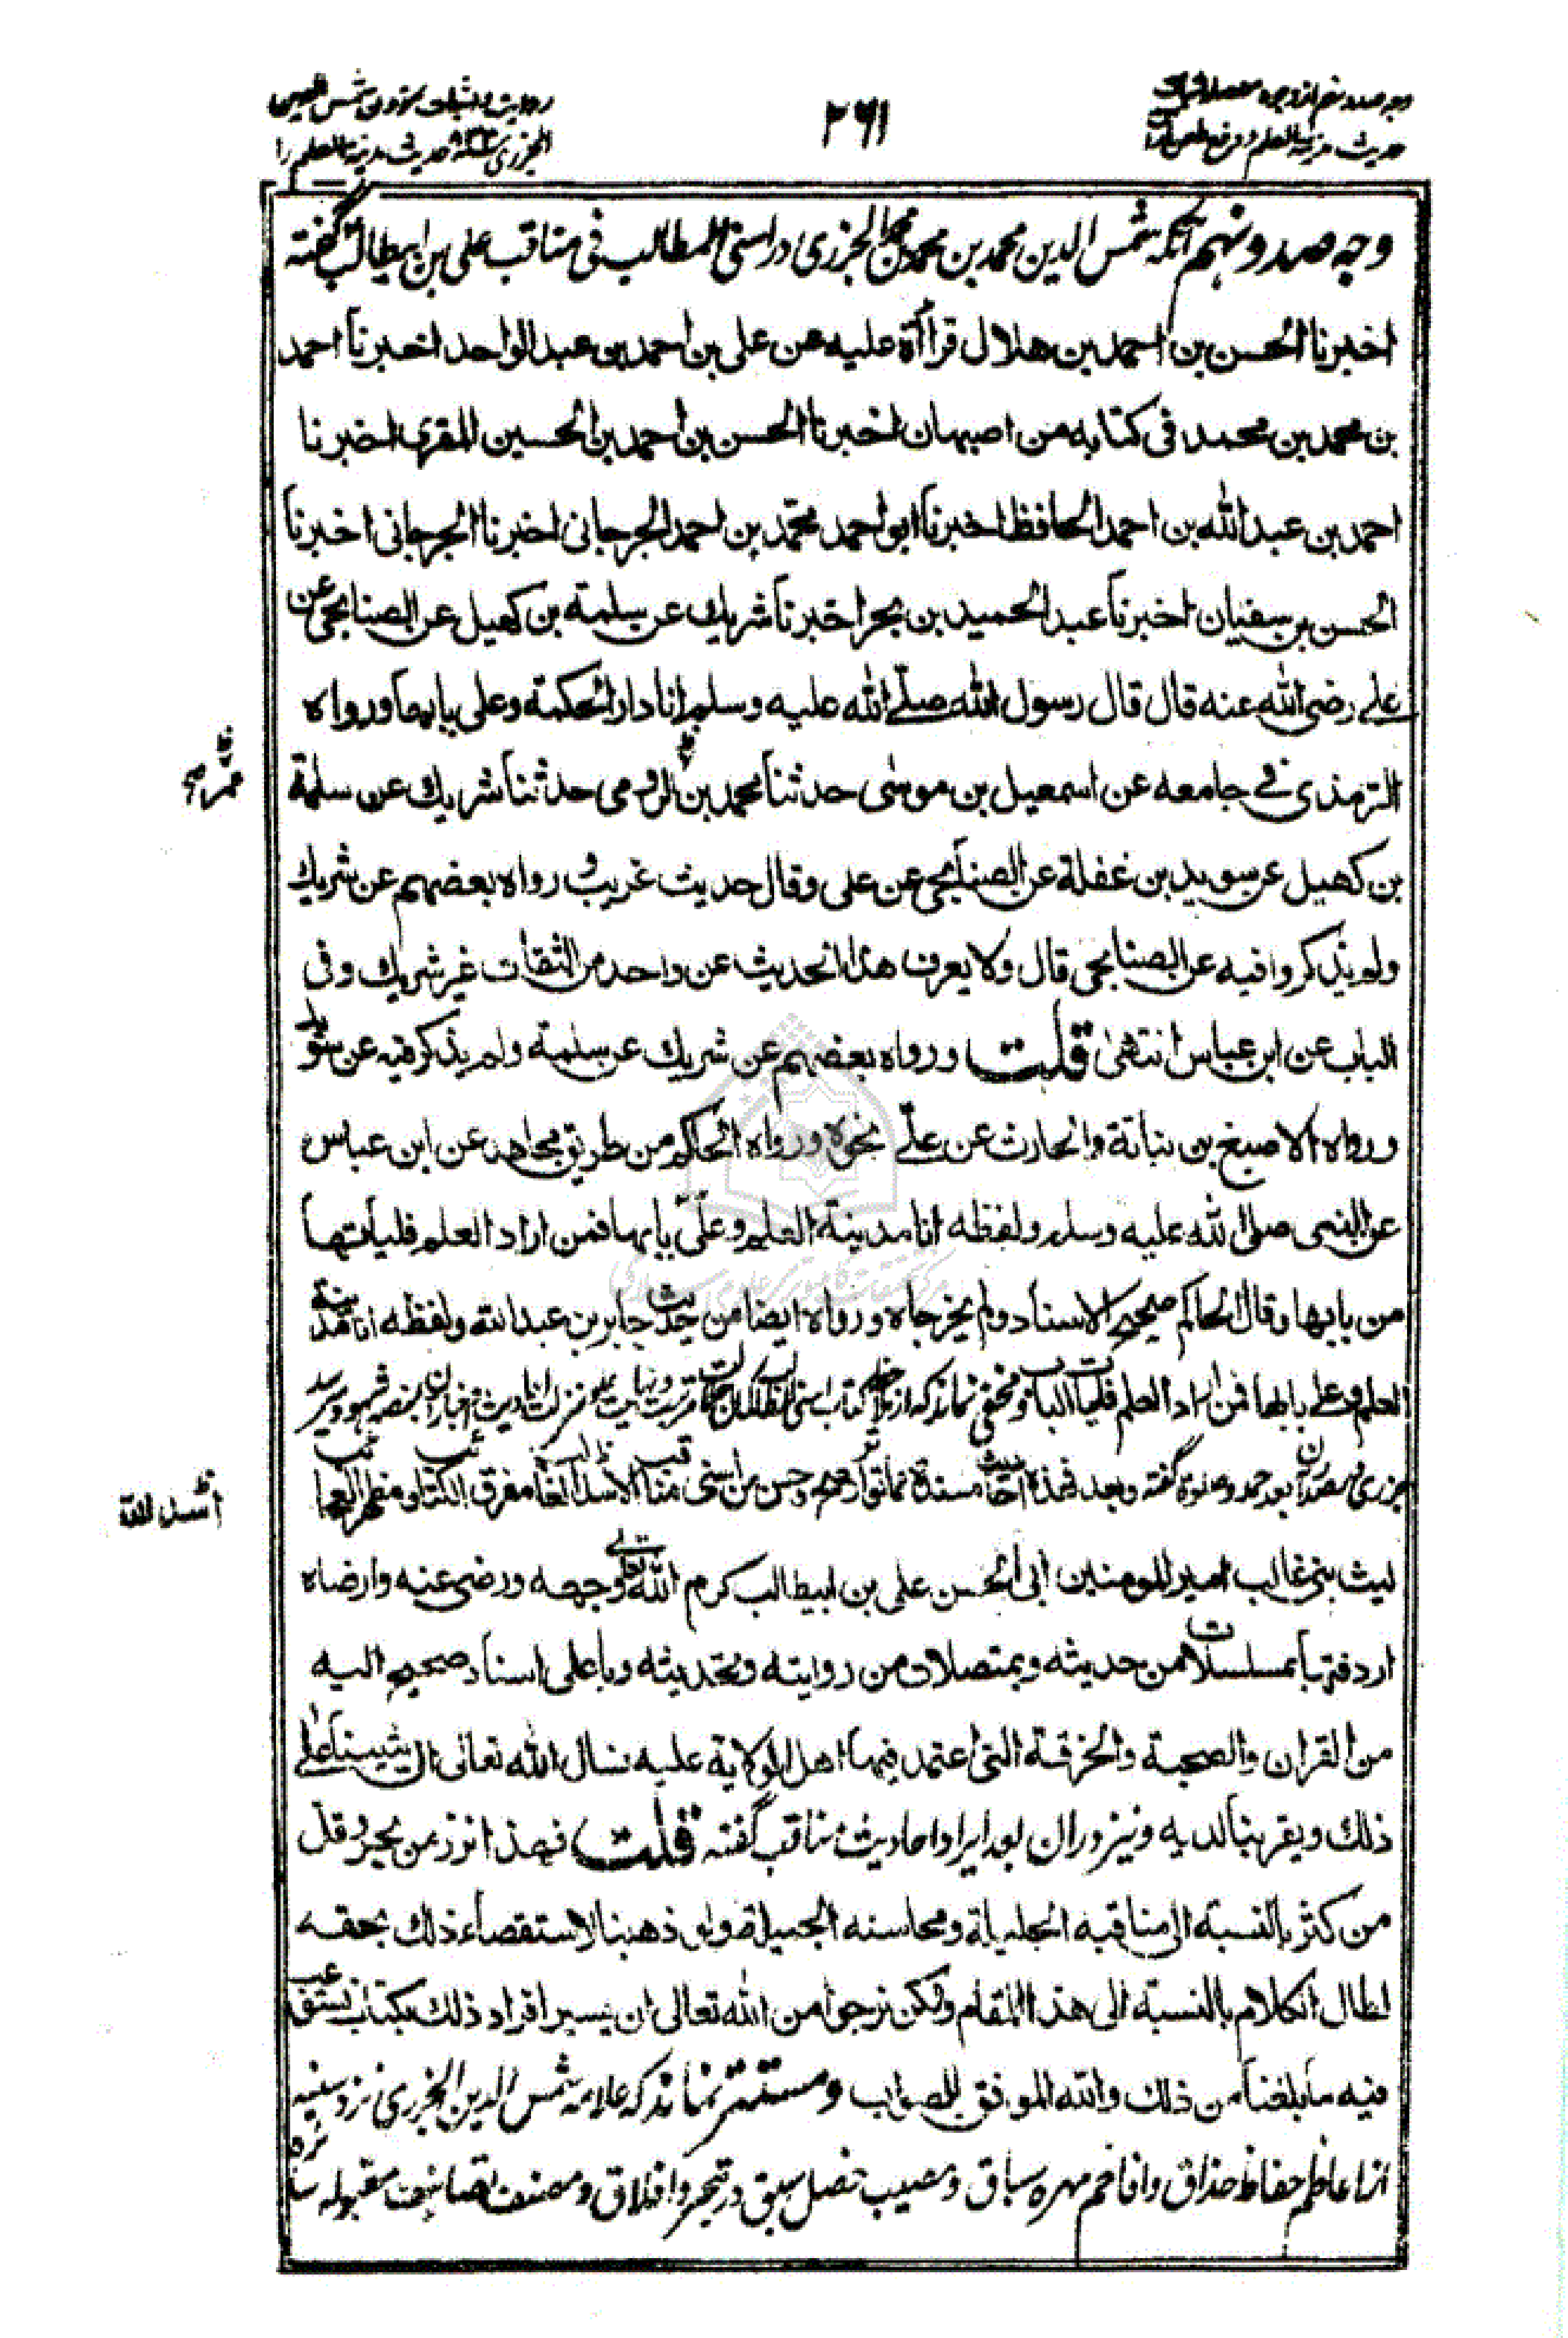 وجه صد و نهم از وجوه
حديث مدينة العلم
۲۶۱
روايت و اثبات نمودن شمس الدين
الجزري حديث مدينة العلم را
وجه صد و نهم آنكه شمس الدين محمد بن محمد بن محمد الجزري در اسنى المطالب في مناقب علي بن ابيطالب گفته
اخبرنا الحسن بن احمد بن هلال قراأة عليه عن علي بن احمد بن عبد الواحد اخبرنا احمد
بن محمد بن محمد في كتابه من اصبهان اخبرنا الحسن بن احمد بن الحسين المقري اخبرنا
احمد بن عبد الله بن احمد الحافظ اخبرنا ابو احمد محمد بن احمد الجرجاني اخبرنا الجرجاني اخبرنا
الحسن بن سفيان اخبرنا عبد الحميد بن بحر اخبرنا شريك عن سلمة بن كهيل عن الصنابحي عن
علي رضي الله عنه قال قال رسول الله صلى الله عليه وسلم انا دار الحكمة وعلي بابها ورواه
الترمذي في جامعه عن اسمعيل بن موسى حدثنا محمد بن الرومي حدثنا شريك عن سلمة
عمر صح
بن كهيل عن سويد بن غفلة عن الصنابحي عن علي وقال حديث غريب و رواه بعضهم عن شريك
ولم يذكروا فيه عن الصنابحي قال ولا يعرف هذا الحديث عن واحد من الثقات غير شريك وفي
الباب عن ابن عباس انتهى قلت ورواه بعضهم عن شريك عن سلمة ولم يذكر فيه عن سويد
ورواه الاصبغ بن نباتة والحارث عن علي نحوه ورواه الحاكم من طريق مجاهد عن ابن عباس
عن النبي صلى الله عليه وسلم ولفظه انا مدينة العلم وعلي بابها فمن اراد العلم فلياتها
من بابها وقال الحاكم صحيح الاسناد ولم يخرجاه ورواه ايضا من حديث جابر بن عبد الله ولفظه انا مدينة
العلم وعلي بابها فمن اراد العلم فليات الباب و مخفي نماند كه از ملاحظه كتاب اسنى المطالب
جزري در صدر آن بعد حمد و صلوة گفته وبعد فهذه احاديث مسندة مما تواتر وصح وحسن من اسنى مناقب الاسد الغالب مفرق الكتائب ومظهر العجائب
اسد الله
ليث بني غالب امير المومنين ابي الحسن علي بن ابيطالب كرم الله تعالى وجهه ورضي عنه وارضاه
اردفتها بمسلسلات من حديثه وبمتصلات من روايته وتحديثه وباعلى اسناد صحيح اليه
من القران والصحبة والخرقة التي اعتمد فيها اهل الولاية عليه نسال الله تعالى ان يثيبنا على
ذلك ويقربنا لديه و نيز در ان بعد ايراد احاديث مناقب گفته قلت فهذا نزر من بحر وقل
من كثر بالنسبة الى مناقبه الجليلة ومحاسنه الجميلة ولو ذهبنا لاستقصاء ذلك بحقه
لطال الكلام بالنسبة الى هذا المقام ولكن نرجوا من الله تعالى ان يسير افراد ذلك بكتاب نستوعب
فيه ما بلغنا من ذلك والله الموفق للصواب و مستتر نماند كه علامه شمس الدين الجزري نزد سنيه
از اعاظم حفاظ حذاق و افاخم مهره سباق و مصيب خصل سبق در تبحر و افلاق و مصنف تصانيف مقبوله